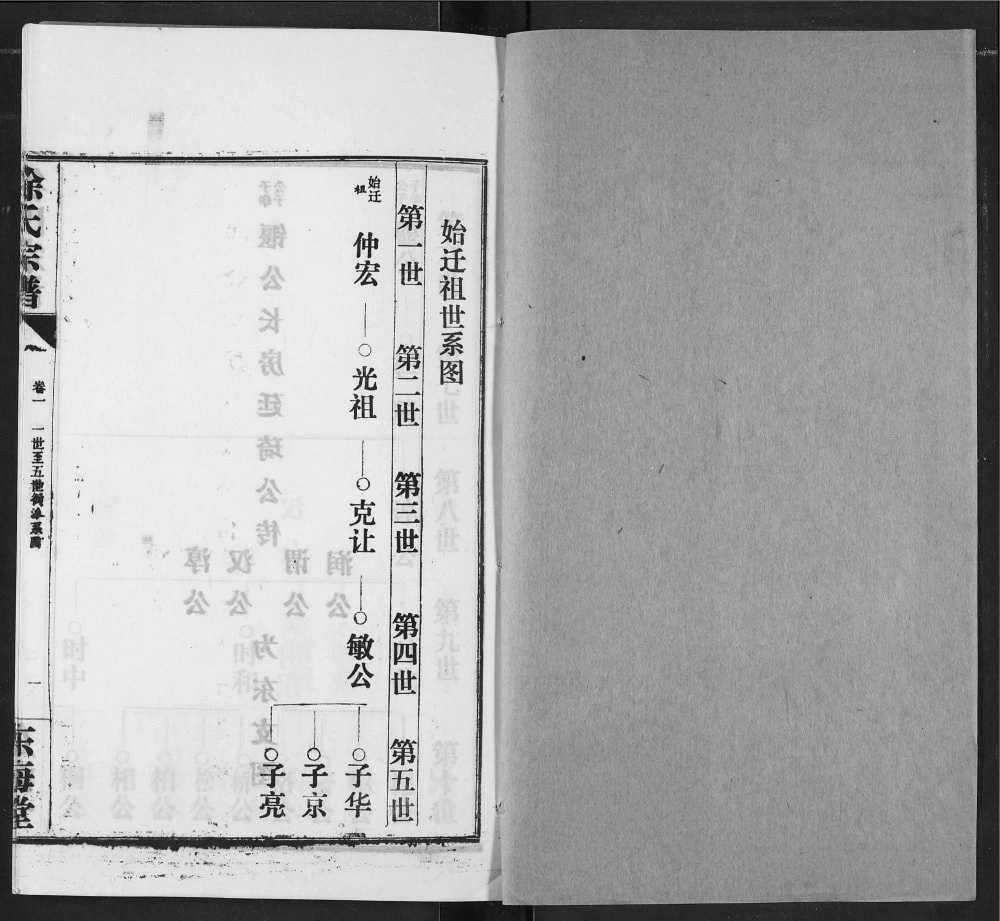 始迁祖世系图
第一世 第二世 第三世 第四世 第五世
始迁祖 仲宏 光祖 克让 敏公 子华
子京
子亮
徐氏宗谱
卷一 一世至五世
一
东海堂